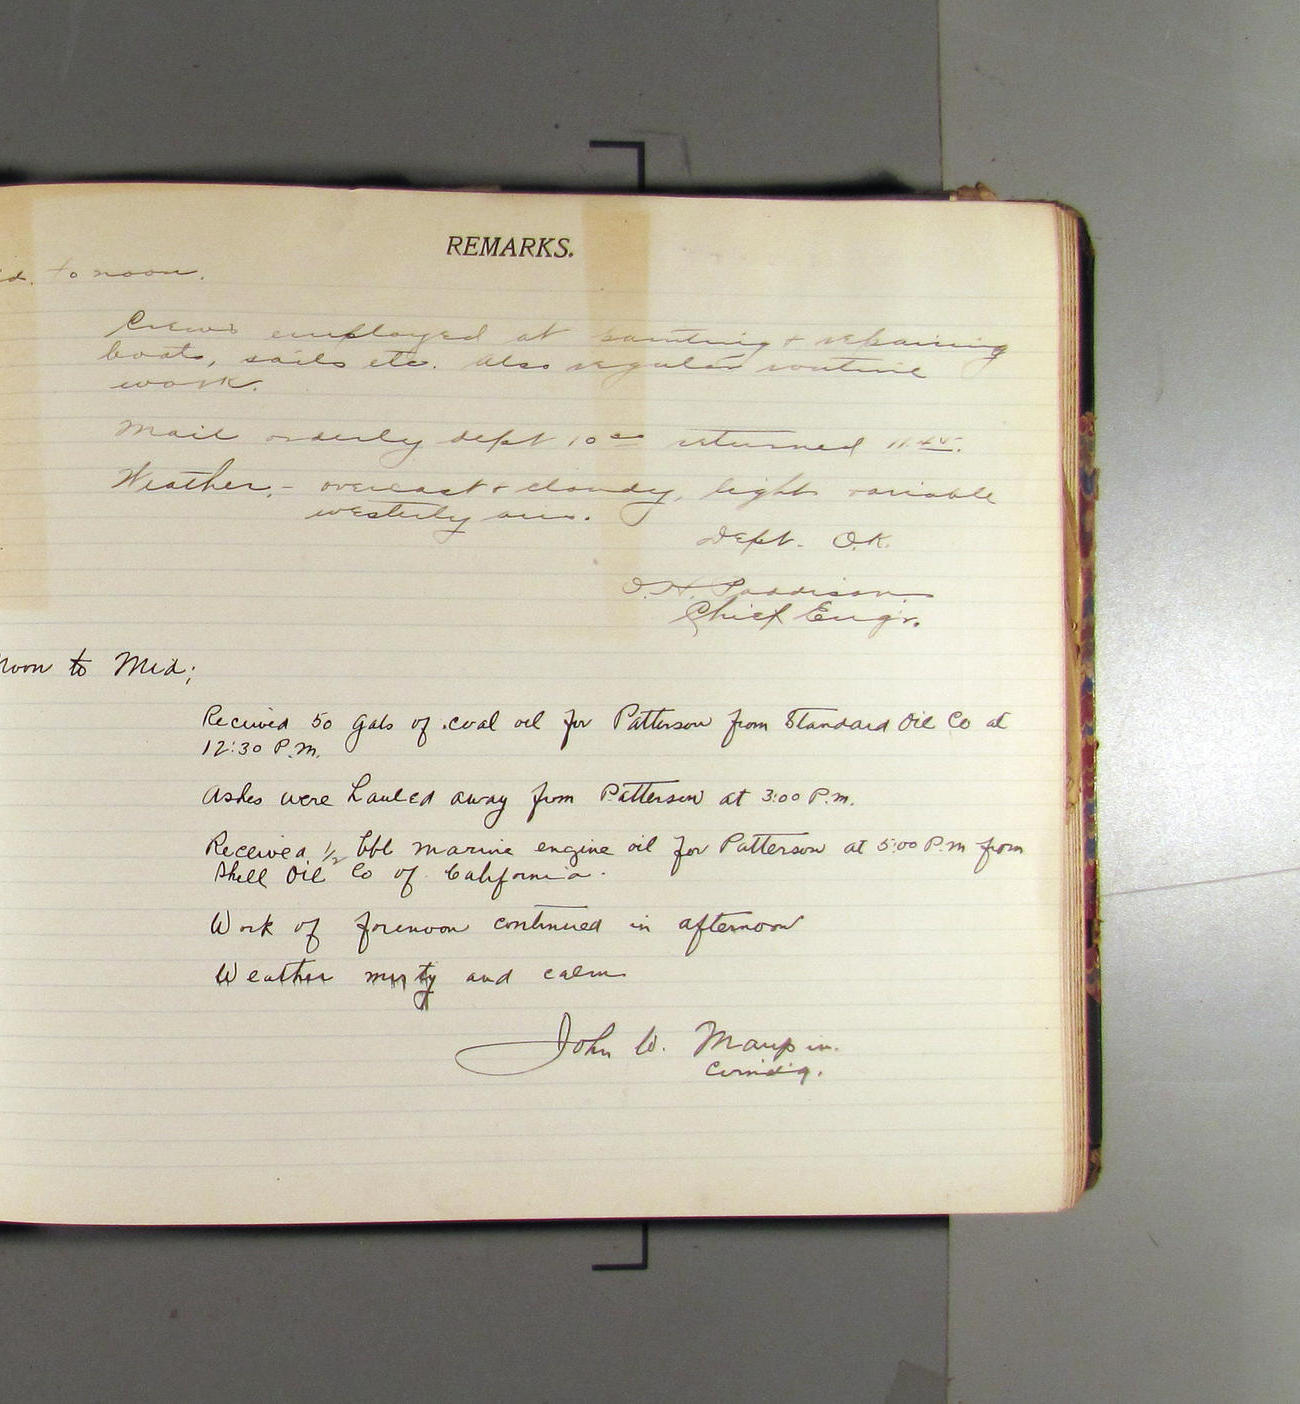 REMARKS.
to noon.
Crews employed at painting & repairing
boats, sails etc. Also regular routine
work.
Mail orderly dept 10 00 returned 11 45.
Weather,- overcast & cloudy, light variable
westerly airs.
Dept. O.K.
Chief Engr.
Noon to Mid;
Received 50 gals of coal oil for Patterson from Standard Oil Co at
12:30 P.M.
Ashes were hauled away from Patterson at 3:00 P.M.
Received 1/2 bbl marine engine oil for Patterson at 5:00 P.M from
Shell Oil Co of California.
Work of forenoon continued in afternoon
Weather misty and calm
John W. Maupin.
Comdg.